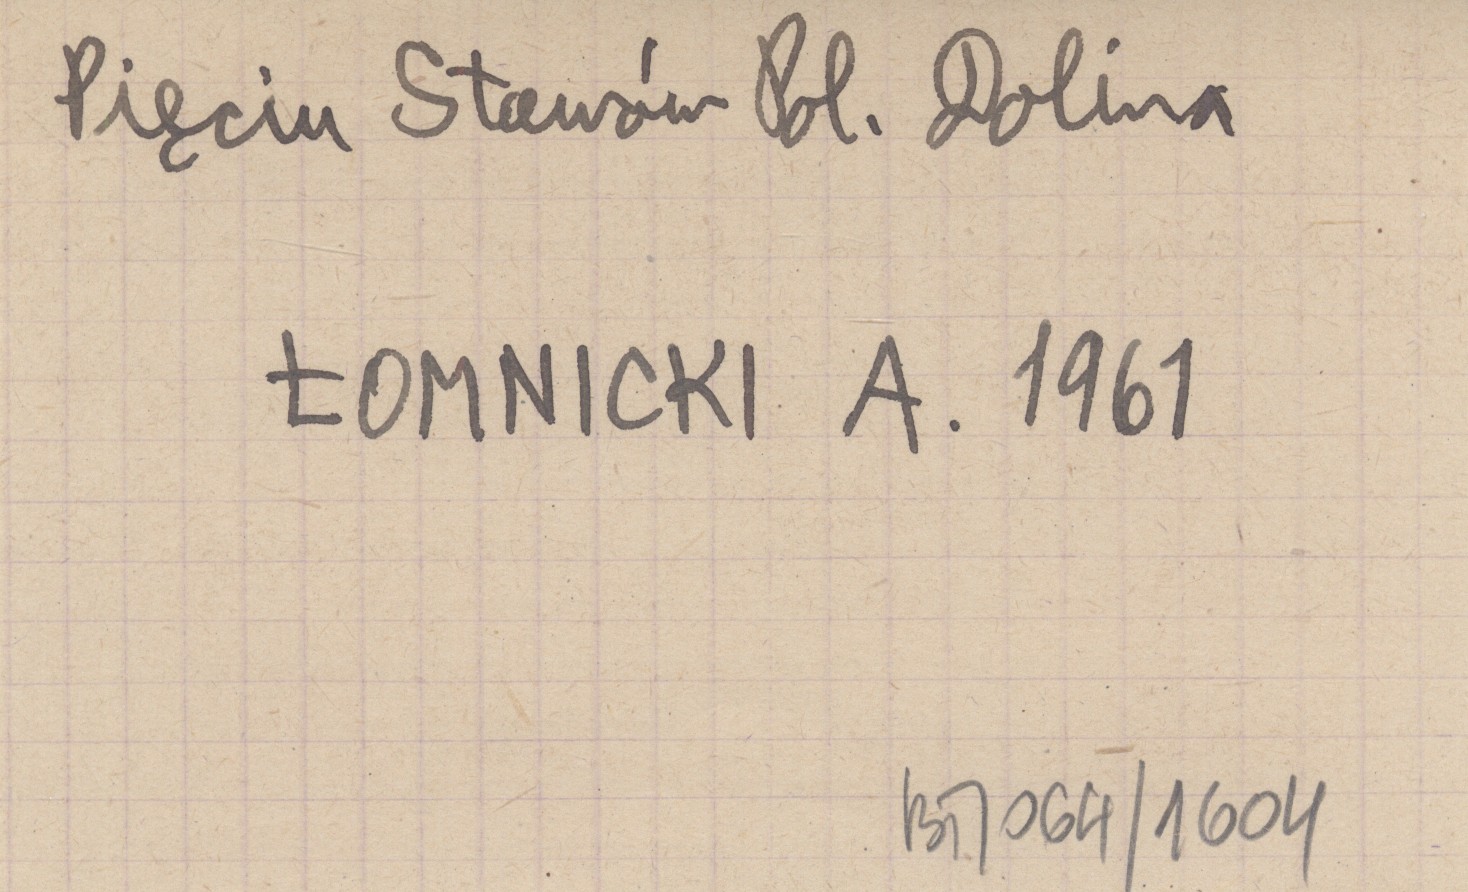 Pięciu Stawów Pol. Dolina
ŁOMNICKI A. 1961
064/1604